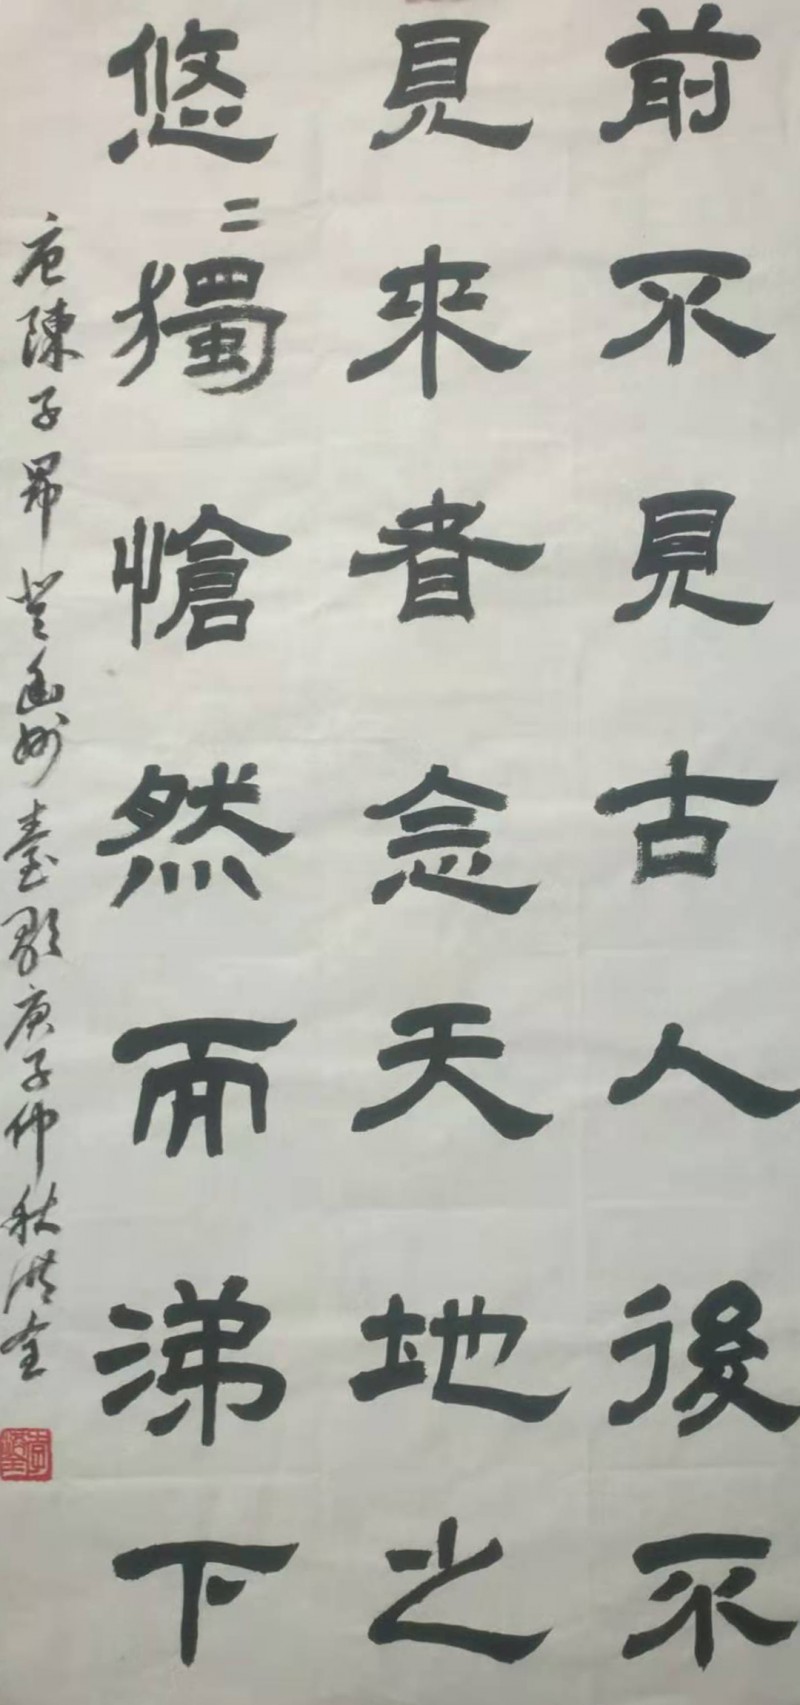 前不見古人後不
見来者念天地之
悠〻獨愴然而涕下
唐陳子昂登幽州臺歌庚子仲秋洪全